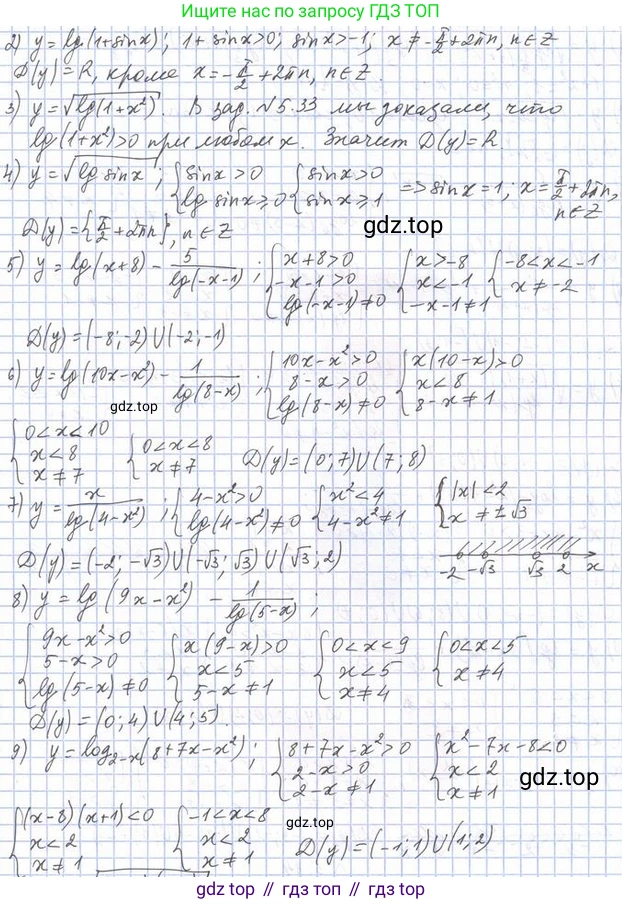 Ищите нас по запросу ГДЗ ТОП
2) y = lg(1+sinx); 1+sinx>0; sinx>-1; x ≠ -π/2+2πn, n∈Z
D(y)=R, кроме x=-π/2+2πn, n∈Z.
3) y=√lg(1+x²). В зад. №5.33 мы доказали, что
lg(1+x²)>0 при любом x. Значит D(y)=R
4) y=√lg sinx; {sinx>0 lg sinx⩾0 {sinx>0 sinx⩾1 => sinx=1; x=π/2+2πn, n∈Z
D(y)={π/2+2πn}, n∈Z
gdz.top
5) y=lg(x+8) - 5/lg(-x-1); {x+8>0 -x-1>0 lg(-x-1)≠0 {x>-8 x<-1 -x-1≠1 {-8<x<-1 x≠-2
D(y)=(-8;-2)U(-2;-1)
6) y=lg(10x-x²) - 1/lg(8-x); {10x-x²>0 8-x>0 lg(8-x)≠0 {x(10-x)>0 x<8 8-x≠1
gdz.top
{0<x<10 x<8 x≠7 {0<x<8 x≠7 D(y)=(0;7)U(7;8)
7) y=x/lg(4-x²); {4-x²>0 lg(4-x²)≠0 {x²<4 4-x²≠1 {|x|<2 x≠±√3
D(y)=(-2;-√3)U(-√3;√3)U(√3;2)
-2 -√3 √3 2 x
8) y=lg(9x-x²) - 1/lg(5-x);
{9x-x²>0 5-x>0 lg(5-x)≠0 {x(9-x)>0 x<5 5-x≠1 {0<x<9 x<5 x≠4 {0<x<5 x≠4
D(y)=(0;4)U(4;5).
9) y=log₂₋ₓ(8+7x-x²); {8+7x-x²>0 2-x>0 2-x≠1 {x²-7x-8<0 x<2 x≠1
gdz.top
{(x-8)(x+1)<0 x<2 x≠1 {-1<x<8 x<2 x≠1 D(y)=(-1;1)U(1;2)
gdz.top
gdz.top // gdz.top // gdz.top